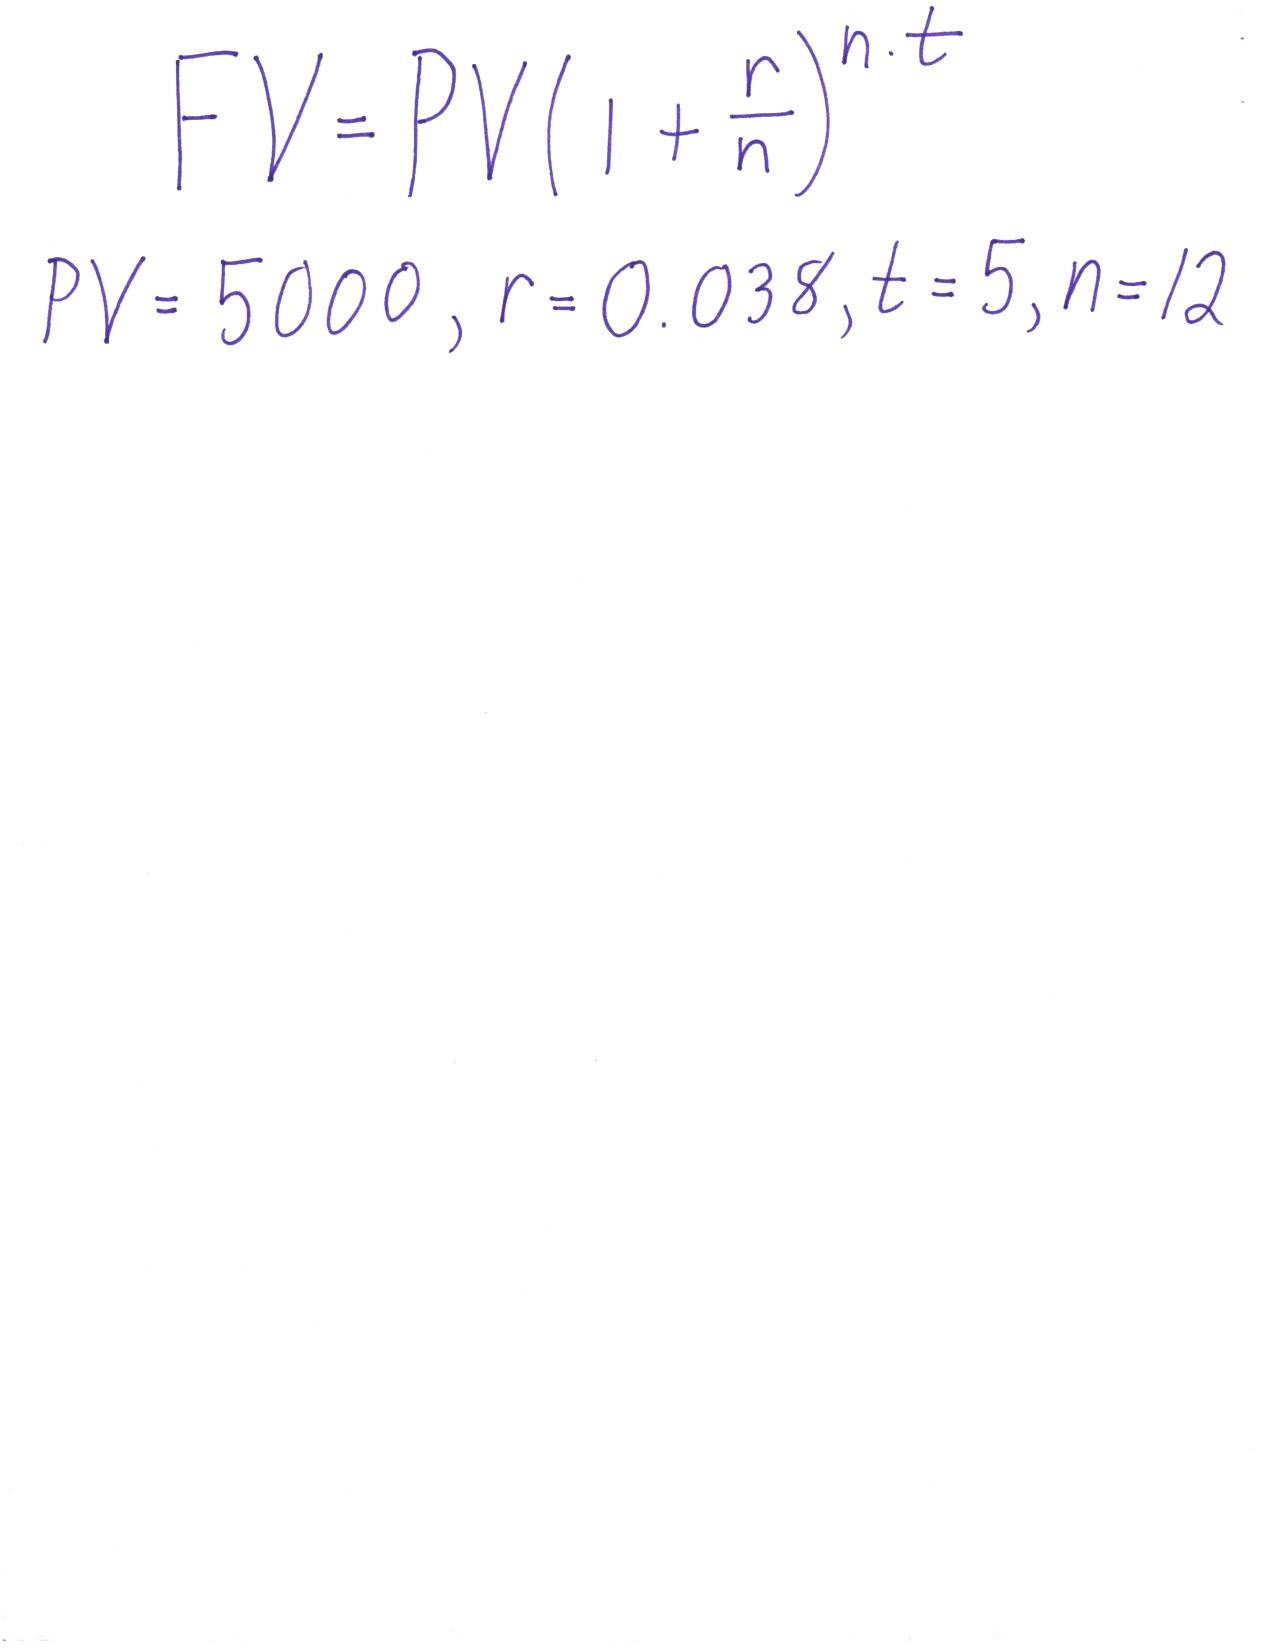 FV = PV(1 + r/n)^n·t
PV = 5000, r = 0.038, t = 5, n = 12